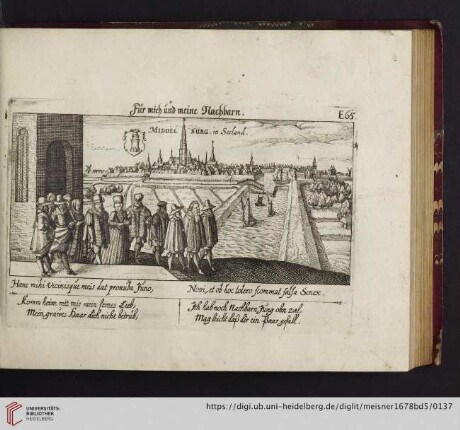 Für mich und meine Nachbarn.
E65
MIDDEL BURG. in Seeland.
Hanc mihi Vicinisque meis dat pronuba Juno,
Novi, et ob hoc tolero scommata salsa Senex.
Komm heim mit mir mein feines Lieb,
Mein graives Haar dich nicht betrüb,
Ich hab noch Nachbarn Jung ohn zal,
Mag leicht das dir ein Paar gefall.
UNIVERSITÄTS-
BIBLIOTHEK
HEIDELBERG
https://digi.ub.uni-heidelberg.de/diglit/meisner1678bd5/0137